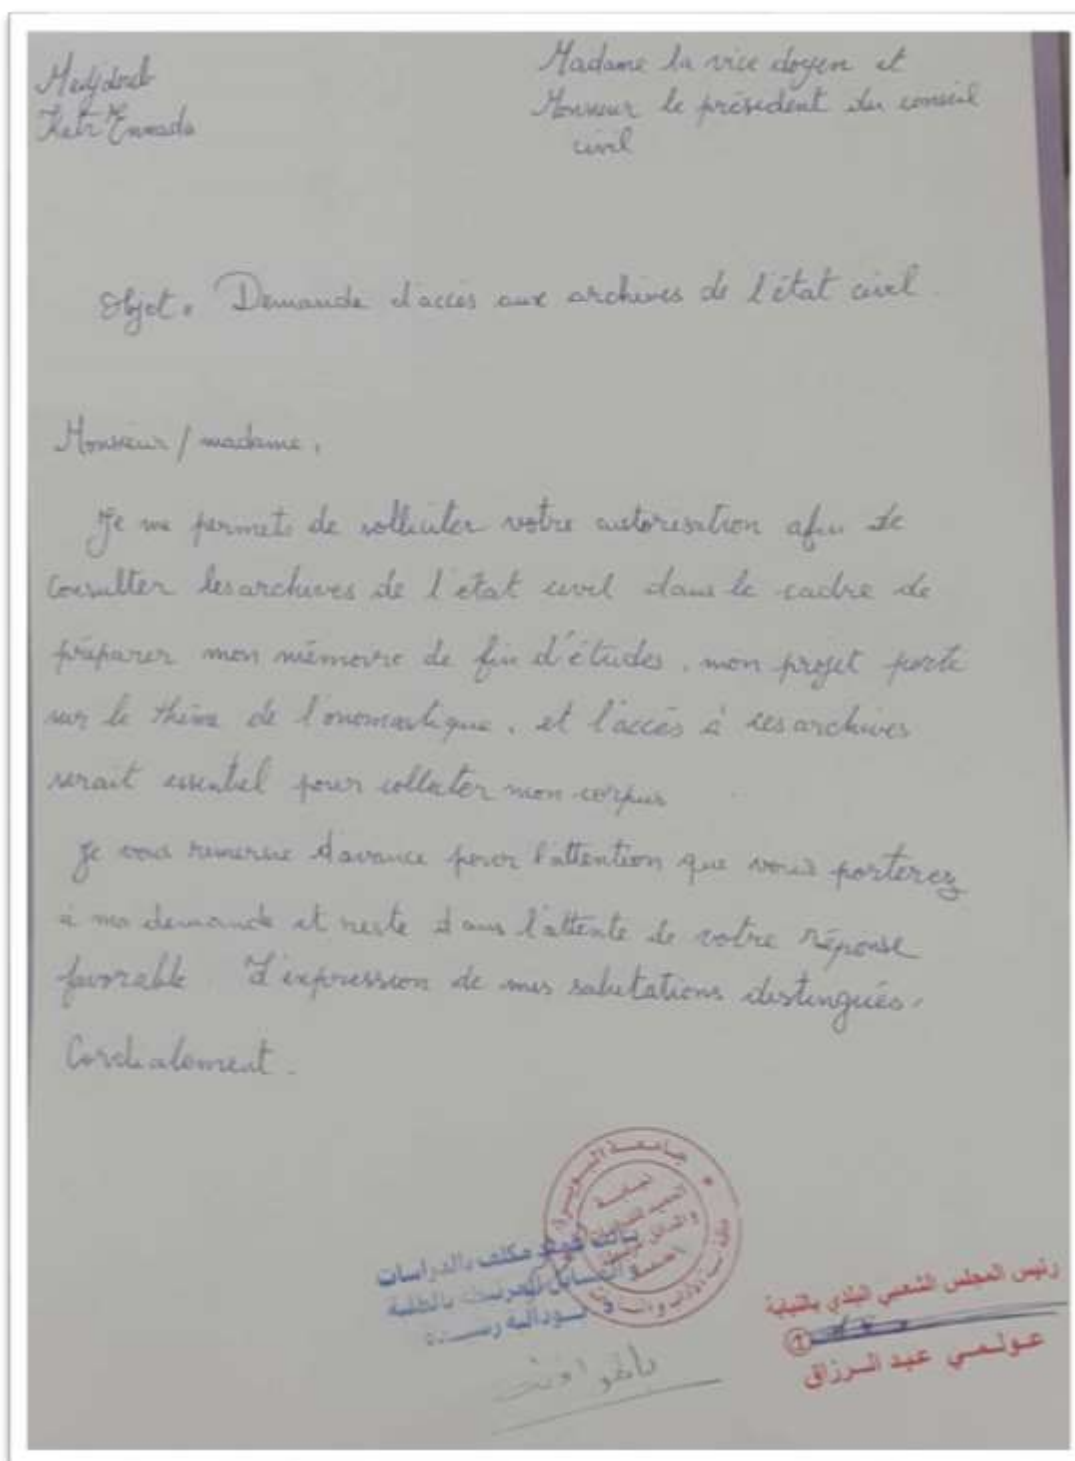 Medjdoub
Katr Ennada
Madame la vice doyen et
Monsieur le président du conseil
civil
Objet : Demande d'accès aux archives de l'état civil.
Monsieur / madame,
Je me permets de solliciter votre autorisation afin de
consulter les archives de l'état civil dans le cadre de
préparer mon mémoire de fin d'études, mon projet porte
sur le thème de l'onomastique, et l'accès à ces archives
serait essentiel pour collecter mon corpus
Je vous remercie d'avance pour l'attention que vous porterez
à ma demande et reste dans l'attente de votre réponse
favorable. L'expression de mes salutations distingués.
Cordialement.
جامعة البويرة
نائب العميد مكلف بالدراسات
والمسائل المرتبطة بالطلبة
بالموافقة
رئيس المجلس الشعبي البلدي بالنيابة
عولمي عبد الرزاق